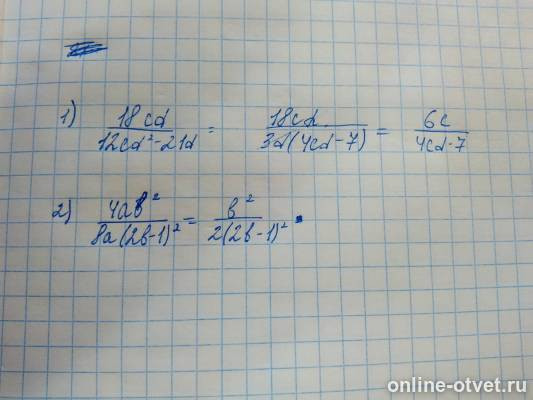 1) 18cd / 12cd² - 21d = 18cd / 3d(4cd - 7) = 6c / 4cd - 7
2) 4ab² / 8a(2b-1)² = b² / 2(2b-1)²
online-otvet.ru